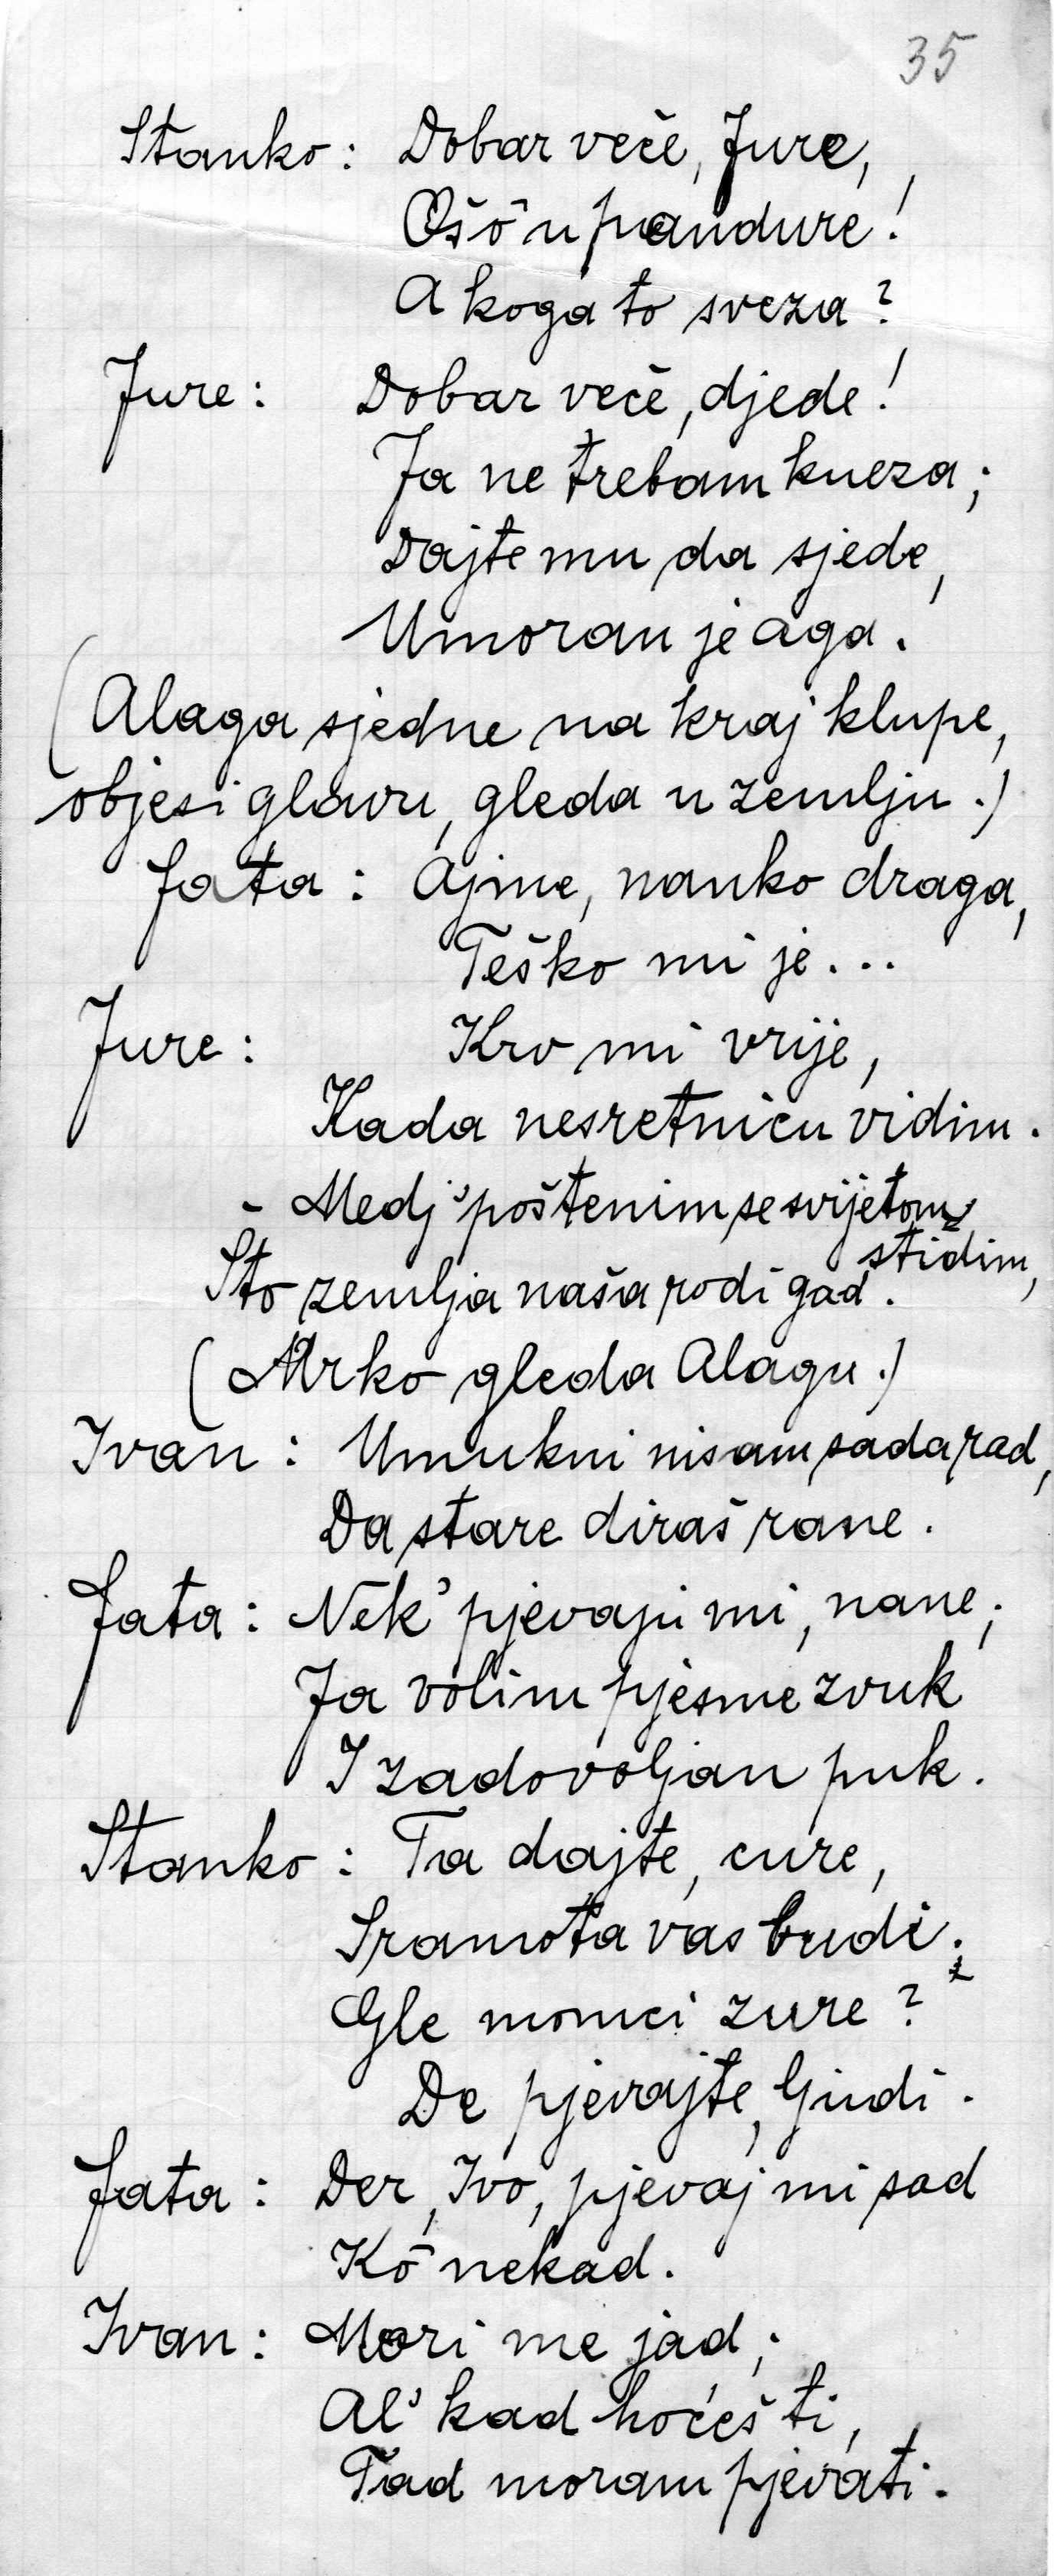 35
Stanko: Dobar veče, Jure,
Ošō u pandure!
A koga to sveza?
Jure: Dobar veče, djede!
Ja ne trebam kneza;
Dajte mu da sjede,
Umoran je aga.
(Alaga sjedne na kraj klupe,
objesi glavu, gleda u zemlju.)
Fata: Ajme, nanko draga,
Teško mi je...
Jure: Krv mi vrije,
Kada nesretnicu vidim.
- Medj' poštenim se svijetom
stidim,
Što zemlja naša rodi gad.
(Mrko gleda Alagu.)
Ivan: Umukni nisam sada rad,
Da stare diraš rane.
Fata: Nek' pjevaju mi, nane;
Ja volim pjesme zvuk
I zadovoljan puk.
Stanko: Ta dajte, cure,
Sramota vas budi.
Gle momci zure?
De pjevajte, ljudi.
Fata: Der, Ivo, pjevaj mi sad
Kō nekad.
Ivan: Mori me jad;
Al' kad hoćeš ti,
Tad moram pjevati.